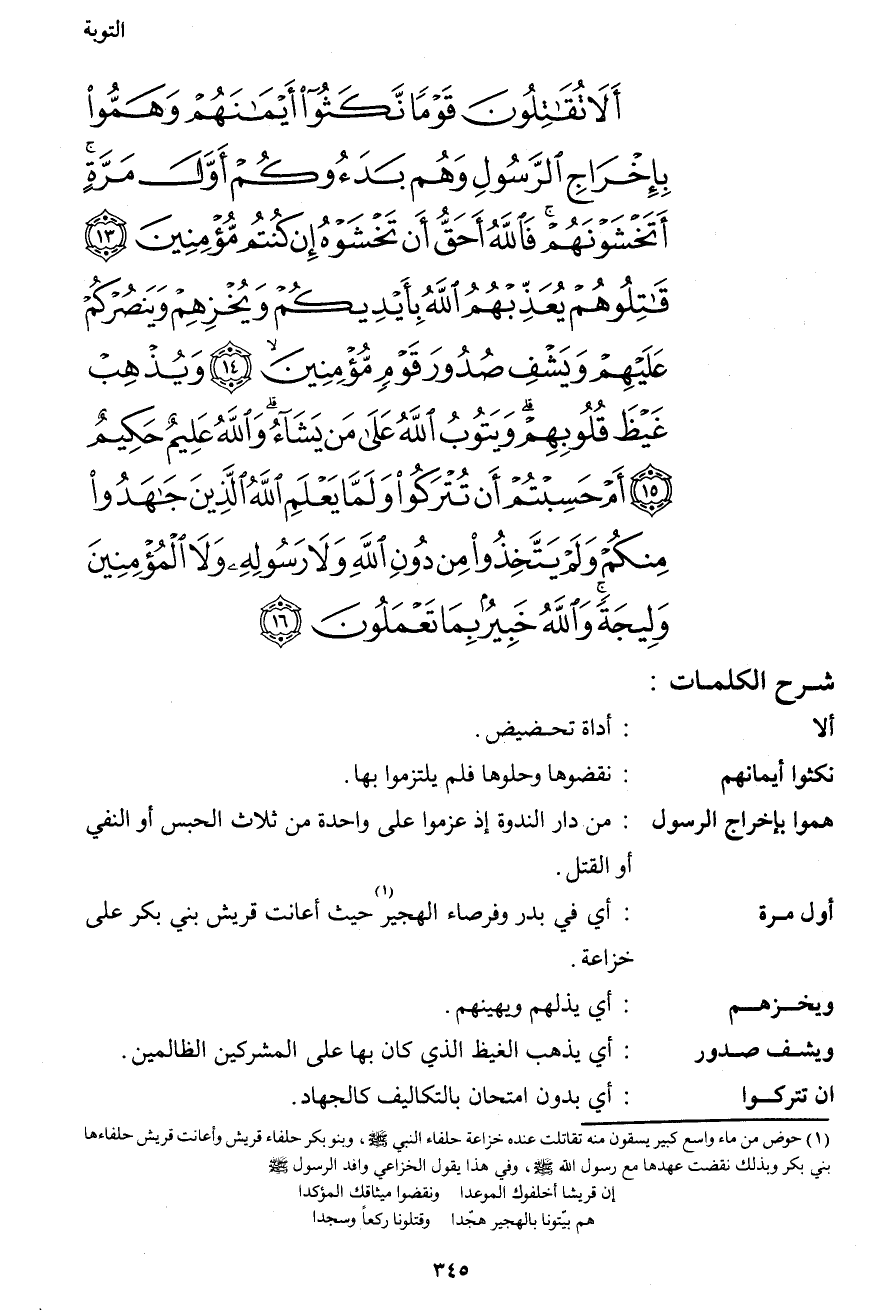 التوبة
أَلَا تُقَٰتِلُونَ قَوْمًا نَّكَثُوٓا۟ أَيْمَٰنَهُمْ وَهَمُّوا۟
بِإِخْرَاجِ ٱلرَّسُولِ وَهُم بَدَءُوكُمْ أَوَّلَ مَرَّةٍ ۚ
أَتَخْشَوْنَهُمْ ۚ فَٱللَّهُ أَحَقُّ أَن تَخْشَوْهُ إِن كُنتُم مُّؤْمِنِينَ ١٣
قَٰتِلُوهُمْ يُعَذِّبْهُمُ ٱللَّهُ بِأَيْدِيكُمْ وَيُخْزِهِمْ وَيَنصُرْكُمْ
عَلَيْهِمْ وَيَشْفِ صُدُورَ قَوْمٍ مُّؤْمِنِينَ ۙ ١٤ وَيُذْهِبْ
غَيْظَ قُلُوبِهِمْ ۗ وَيَتُوبُ ٱللَّهُ عَلَىٰ مَن يَشَآءُ ۗ وَٱللَّهُ عَلِيمٌ حَكِيمٌ
١٥ أَمْ حَسِبْتُمْ أَن تُتْرَكُوا۟ وَلَمَّا يَعْلَمِ ٱللَّهُ ٱلَّذِينَ جَٰهَدُوا۟
مِنكُمْ وَلَمْ يَتَّخِذُوا۟ مِن دُونِ ٱللَّهِ وَلَا رَسُولِهِۦ وَلَا ٱلْمُؤْمِنِينَ
وَلِيجَةً ۚ وَٱللَّهُ خَبِيرٌۢ بِمَا تَعْمَلُونَ ١٦
شرح الكلمات :
ألا : أداة تحضيض .
نكثوا أيمانهم : نقضوها وحلوها فلم يلتزموا بها .
هموا بإخراج الرسول : من دار الندوة إذ عزموا على واحدة من ثلاث الحبس أو النفي
أو القتل .
أول مرة : أي في بدر وفرصاء الهجير(١) حيث أعانت قريش بني بكر على
خزاعة .
ويخزهم : أي يذلهم ويهينهم .
ويشف صدور : أي يذهب الغيظ الذي كان بها على المشركين الظالمين .
ان تتركوا : أي بدون امتحان بالتكاليف كالجهاد .
(١) حوض من ماء واسع كبير يسقون منه تقاتلت عنده خزاعة حلفاء النبي ﷺ ، وبنو بكر حلفاء قريش وأعانت قريش حلفاءها
بني بكر وبذلك نقضت عهدها مع رسول الله ﷺ ، وفي هذا يقول الخزاعي وافد الرسول ﷺ
إن قريشا أخلفوك الموعدا ونقضوا ميثاقك المؤكدا
هم بيّتونا بالهجير هجّدا وقتلونا ركعاً وسجدا
٣٤٥